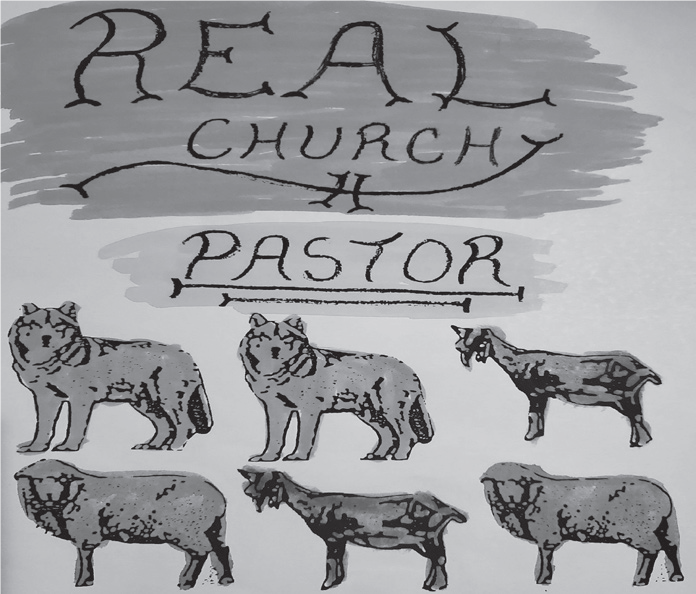 REAL
CHURCHY
PASTOR